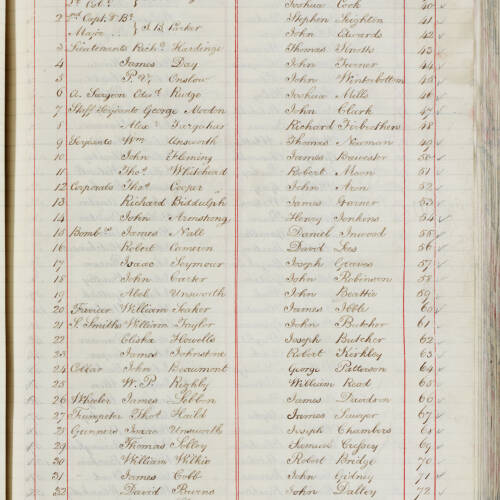 Joshua Cook 40
2 2nd Capt & Bt Major J. B. Parker
Stephen Leighton 41
John Edwards 42
3 Lieutenants Richd Hardinge
Thomas 43
4 James Day
John Turner 44
5 P. V. Onslow
John Winterbottom 45
6 A. Surgeon Edwd Rudge
Joshua Mills 46
7 Staff Serjeants George Morton
John Clark 47
8 Alexr Farquhar
Richard 48
9 Serjeants Wm Unsworth
Thomas Newman 49
10 John Fleming
James 50
11 Thos Whitehead
Robert Moon 51
12 Corporals Thos Cooper
John Aron 52
13 Richard Biddulph
James 53
14 John Armstrong
Henry Jenkins 54
15 Bombrs James Nall
Daniel Inwood 55
16 Robert Cameron
David Lees 56
17 Isaac Seymour
Joseph Greaves 57
18 John Carter
John Robinson 58
19 Abel Unsworth
John Beattie 59
20 Farrier William Feaker
James 60
21 S. Smiths William Taylor
John Butcher 61
22 Elisha Howells
Joseph Butcher 62
23 James Johnstone
Robert Kirkley 63
24 Collar John Beaumont
George Patterson 64
25 W. P. Rigby
William Read 65
26 Wheeler James Sebbon
James Dawdson 66
27 Trumpeter Thos
James Sawyer 67
28 Gunners Isaac Unsworth
Joseph Chambers 68
29 Thomas Selby
Samuel Cressey 69
30 William Wilkie
Robert Bridge 70
31 James Cobb
John Gidney 71
32 David Burns
John Dalley 72